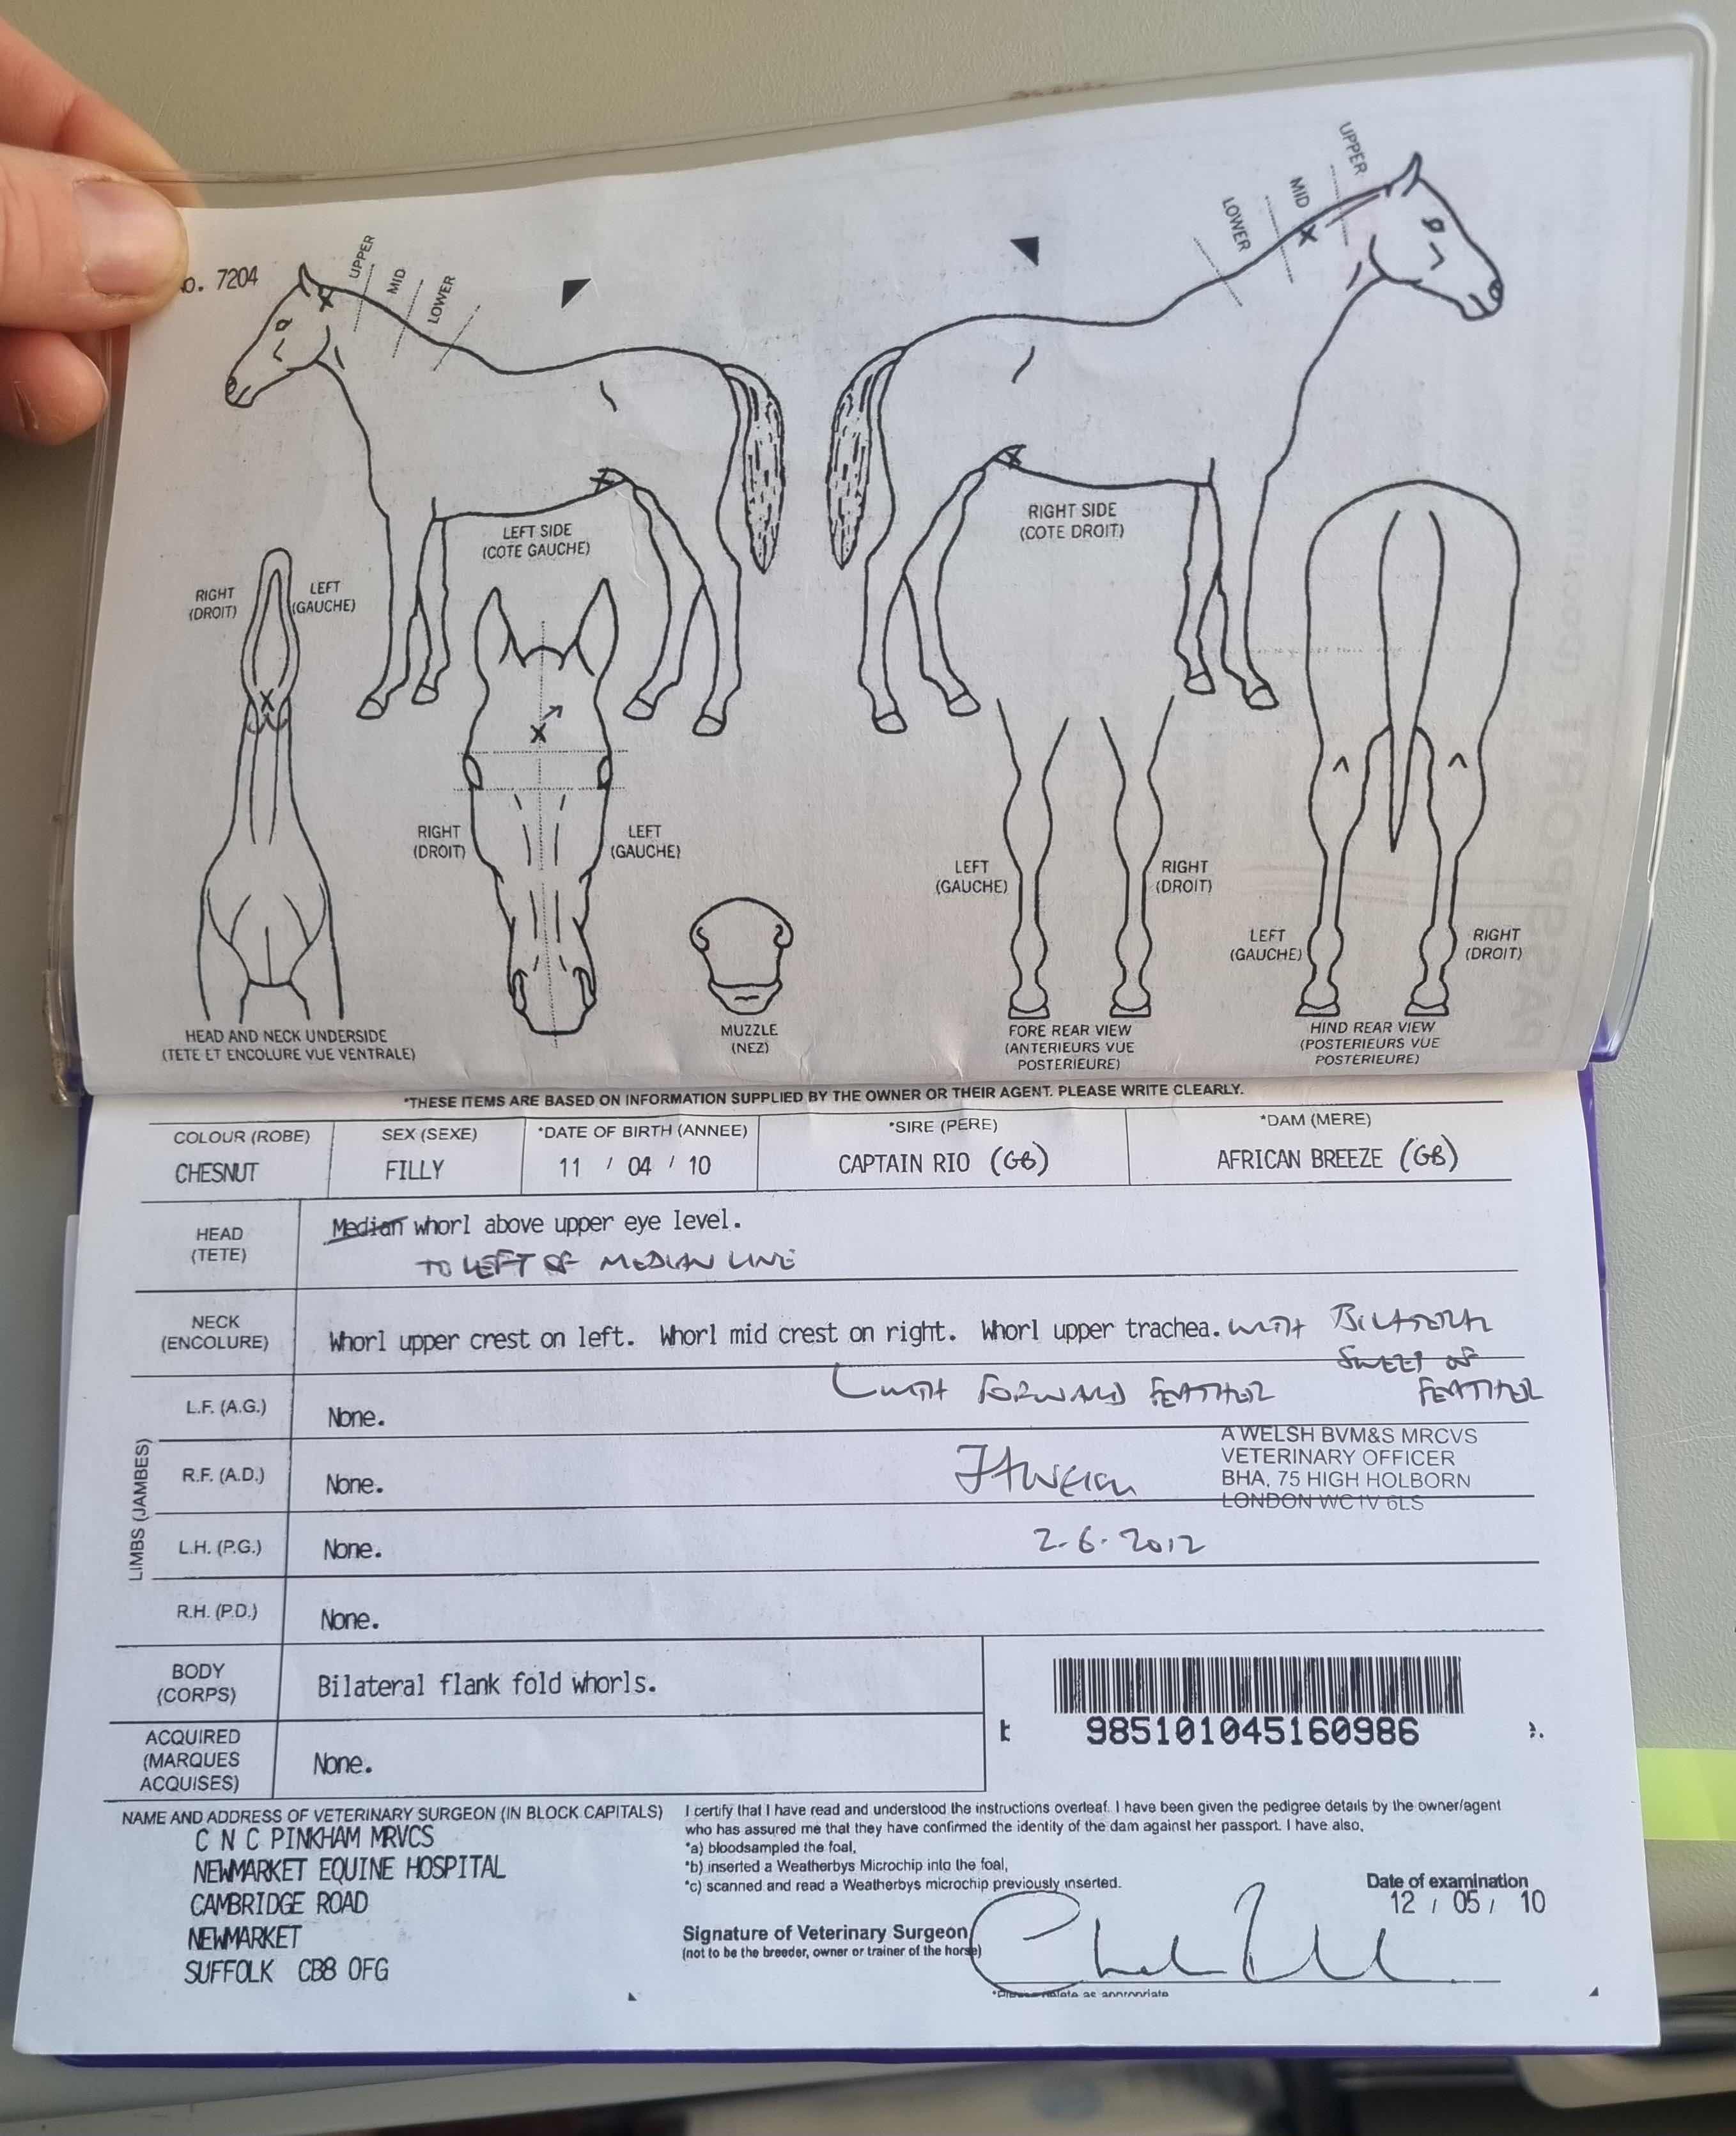 7204
UPPER
MID
LOWER
UPPER
MID
LOWER
LEFT SIDE
(COTE GAUCHE)
RIGHT SIDE
(COTE DROIT)
RIGHT
(DROIT)
LEFT
(GAUCHE)
RIGHT
(DROIT)
LEFT
(GAUCHE)
LEFT
(GAUCHE)
RIGHT
(DROIT)
LEFT
(GAUCHE)
RIGHT
(DROIT)
HEAD AND NECK UNDERSIDE
(TETE ET ENCOLURE VUE VENTRALE)
MUZZLE
(NEZ)
FORE REAR VIEW
(ANTERIEURS VUE
POSTERIEURE)
HIND REAR VIEW
(POSTERIEURS VUE
POSTERIEURE)
*THESE ITEMS ARE BASED ON INFORMATION SUPPLIED BY THE OWNER OR THEIR AGENT. PLEASE WRITE CLEARLY.
COLOUR (ROBE)
CHESNUT
SEX (SEXE)
FILLY
*DATE OF BIRTH (ANNEE)
11 / 04 / 10
*SIRE (PERE)
CAPTAIN RIO (GB)
*DAM (MERE)
AFRICAN BREEZE (GB)
HEAD
(TETE)
Median whorl above upper eye level.
TO LEFT OF MEDIAN LINE
NECK
(ENCOLURE)
Whorl upper crest on left. Whorl mid crest on right. Whorl upper trachea. WITH BILATERAL
SWEEP OF
FEATHER
WITH FORWARD FEATHER
LIMBS (JAMBES)
L.F. (A.G.)
None.
R.F. (A.D.)
None.
A WELSH BVM&S MRCVS
VETERINARY OFFICER
BHA, 75 HIGH HOLBORN
LONDON WC1V 6LS
L.H. (P.G.)
None.
2-6-2012
R.H. (P.D.)
None.
BODY
(CORPS)
Bilateral flank fold whorls.
ACQUIRED
(MARQUES
ACQUISES)
None.
985101045160986
NAME AND ADDRESS OF VETERINARY SURGEON (IN BLOCK CAPITALS)
C N C PINKHAM MRVCS
NEWMARKET EQUINE HOSPITAL
CAMBRIDGE ROAD
NEWMARKET
SUFFOLK CB8 0FG
I certify that I have read and understood the instructions overleaf. I have been given the pedigree details by the owner/agent
who has assured me that they have confirmed the identity of the dam against her passport. I have also,
*a) bloodsampled the foal,
*b) inserted a Weatherbys Microchip into the foal,
*c) scanned and read a Weatherbys microchip previously inserted.
Date of examination
12 / 05 / 10
Signature of Veterinary Surgeon
(not to be the breeder, owner or trainer of the horse)
as appropriate